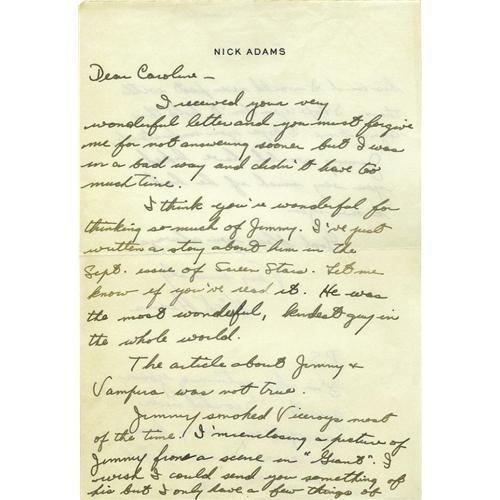 NICK ADAMS
Dear Caroline –
I received your very
wonderful letter and you must forgive
me for not answering sooner but I was
in a bad way and didn't have too
much time.
I think you've wonderful for
thinking so much of Jimmy. I've just
written a story about him in the
Sept. issue of Screen Stars. Let me
know if you've read it. He was
the most wonderful, kindest guy in
the whole world.
The article about Jimmy &
Vampira was not true.
Jimmy smoked Viceroys most
of the time. I'm enclosing a picture of
Jimmy from a scene in "Giant". I
wish I could send you something of
his but I only have a few things of